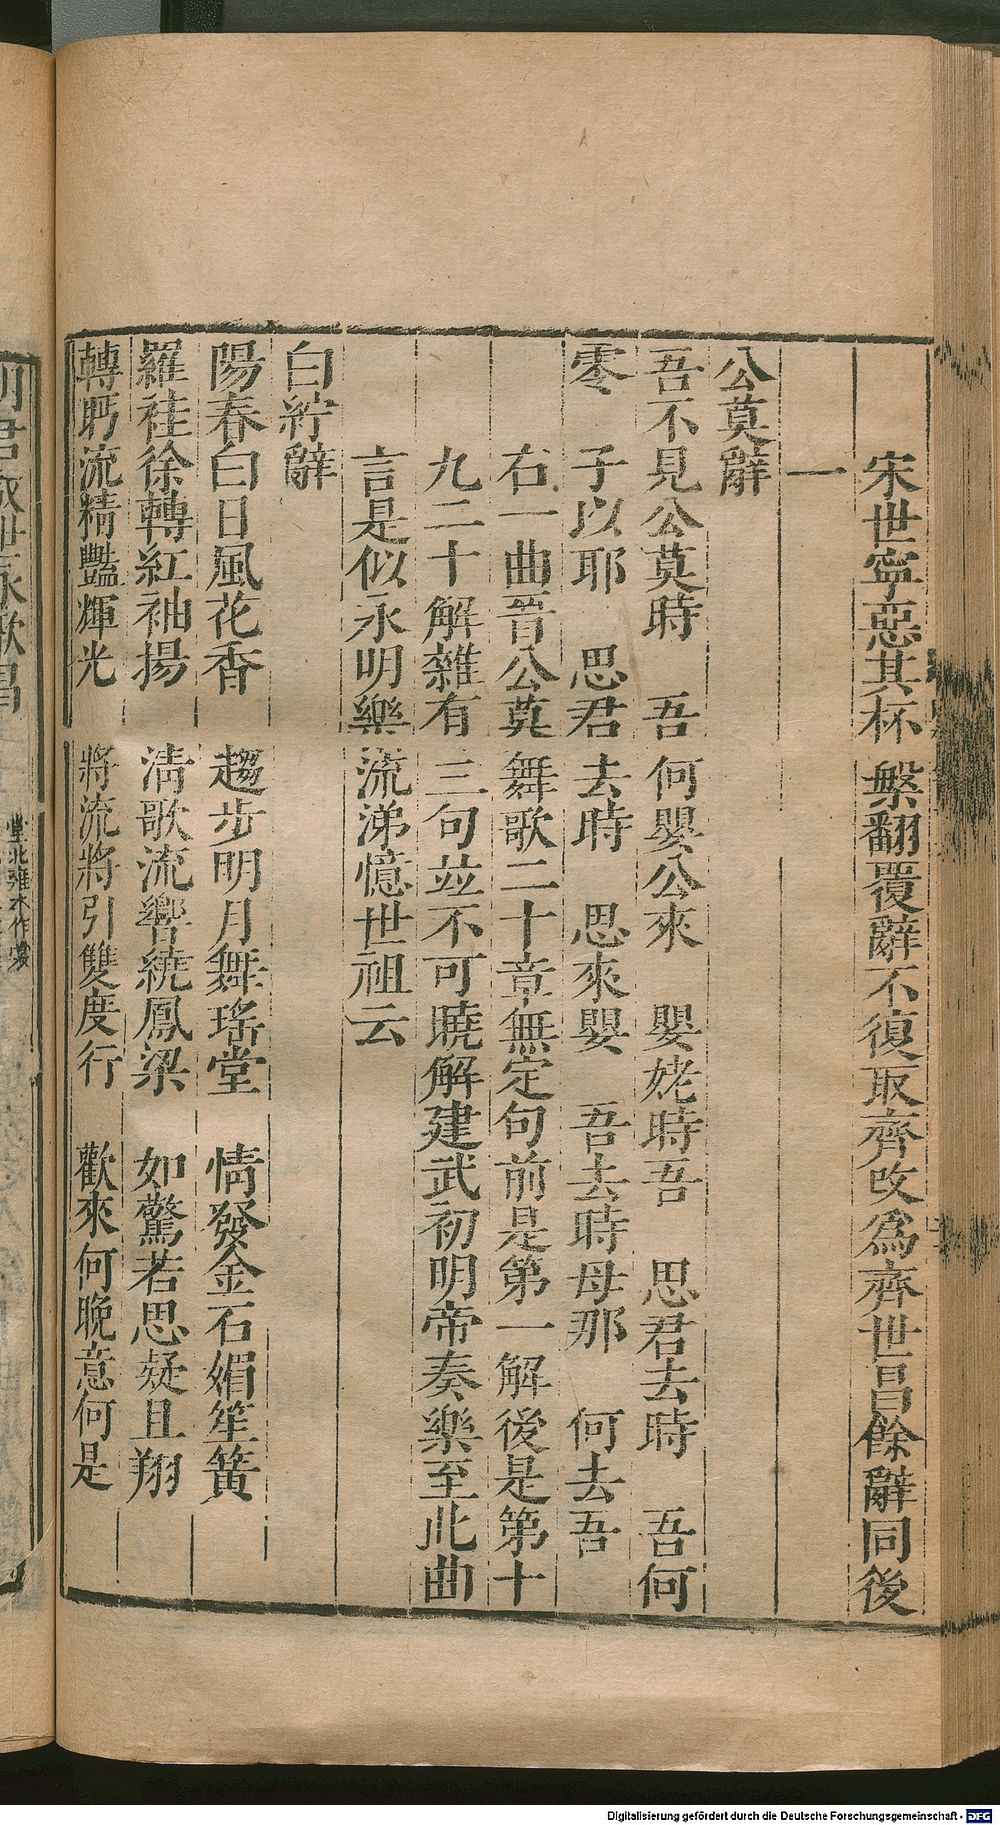 宋世寧惡其杯槃翻覆辭不復取齊改爲齊世昌餘辭同後
一
公莫辭
吾不見公莫時　吾何嬰公來　嬰姥時吾　思君去時　吾何
零　子以耶　思君去時　思來嬰　吾去時母那　何去吾
右一曲晉公莫舞歌二十章無定句前是第一解後是第十
九二十解雜有三句並不可曉解建武初明帝奏樂至此曲
言是似永明樂流涕憶世祖云
白紵辭
陽春白日風花香　趨步明月舞瑤堂　情發金石媚笙簧
羅袿徐轉紅袖揚　清歌流響繞鳳梁　如驚若思疑且翔
轉眄流精豔輝光　將流將引雙度行　歡來何晚意何是
Digitalisierung gefördert durch die Deutsche Forschungsgemeinschaft - DFG